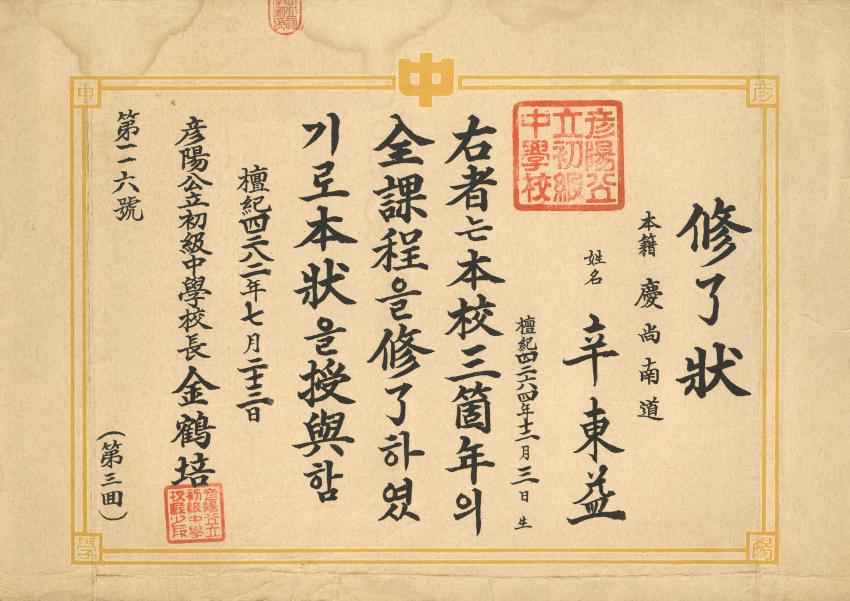 中
修了狀
本籍 慶尚南道
姓名 辛東益
檀紀四二六四年十二月三日生
彦陽公
立初級
中學校
右者는本校三箇年의
全課程을修了하였
기로本狀을授與함
檀紀四二八二年七月二十三日
彦陽公立初級中學校長 金鶴培
第一一六號
(第三回)
彦
陽
中
學